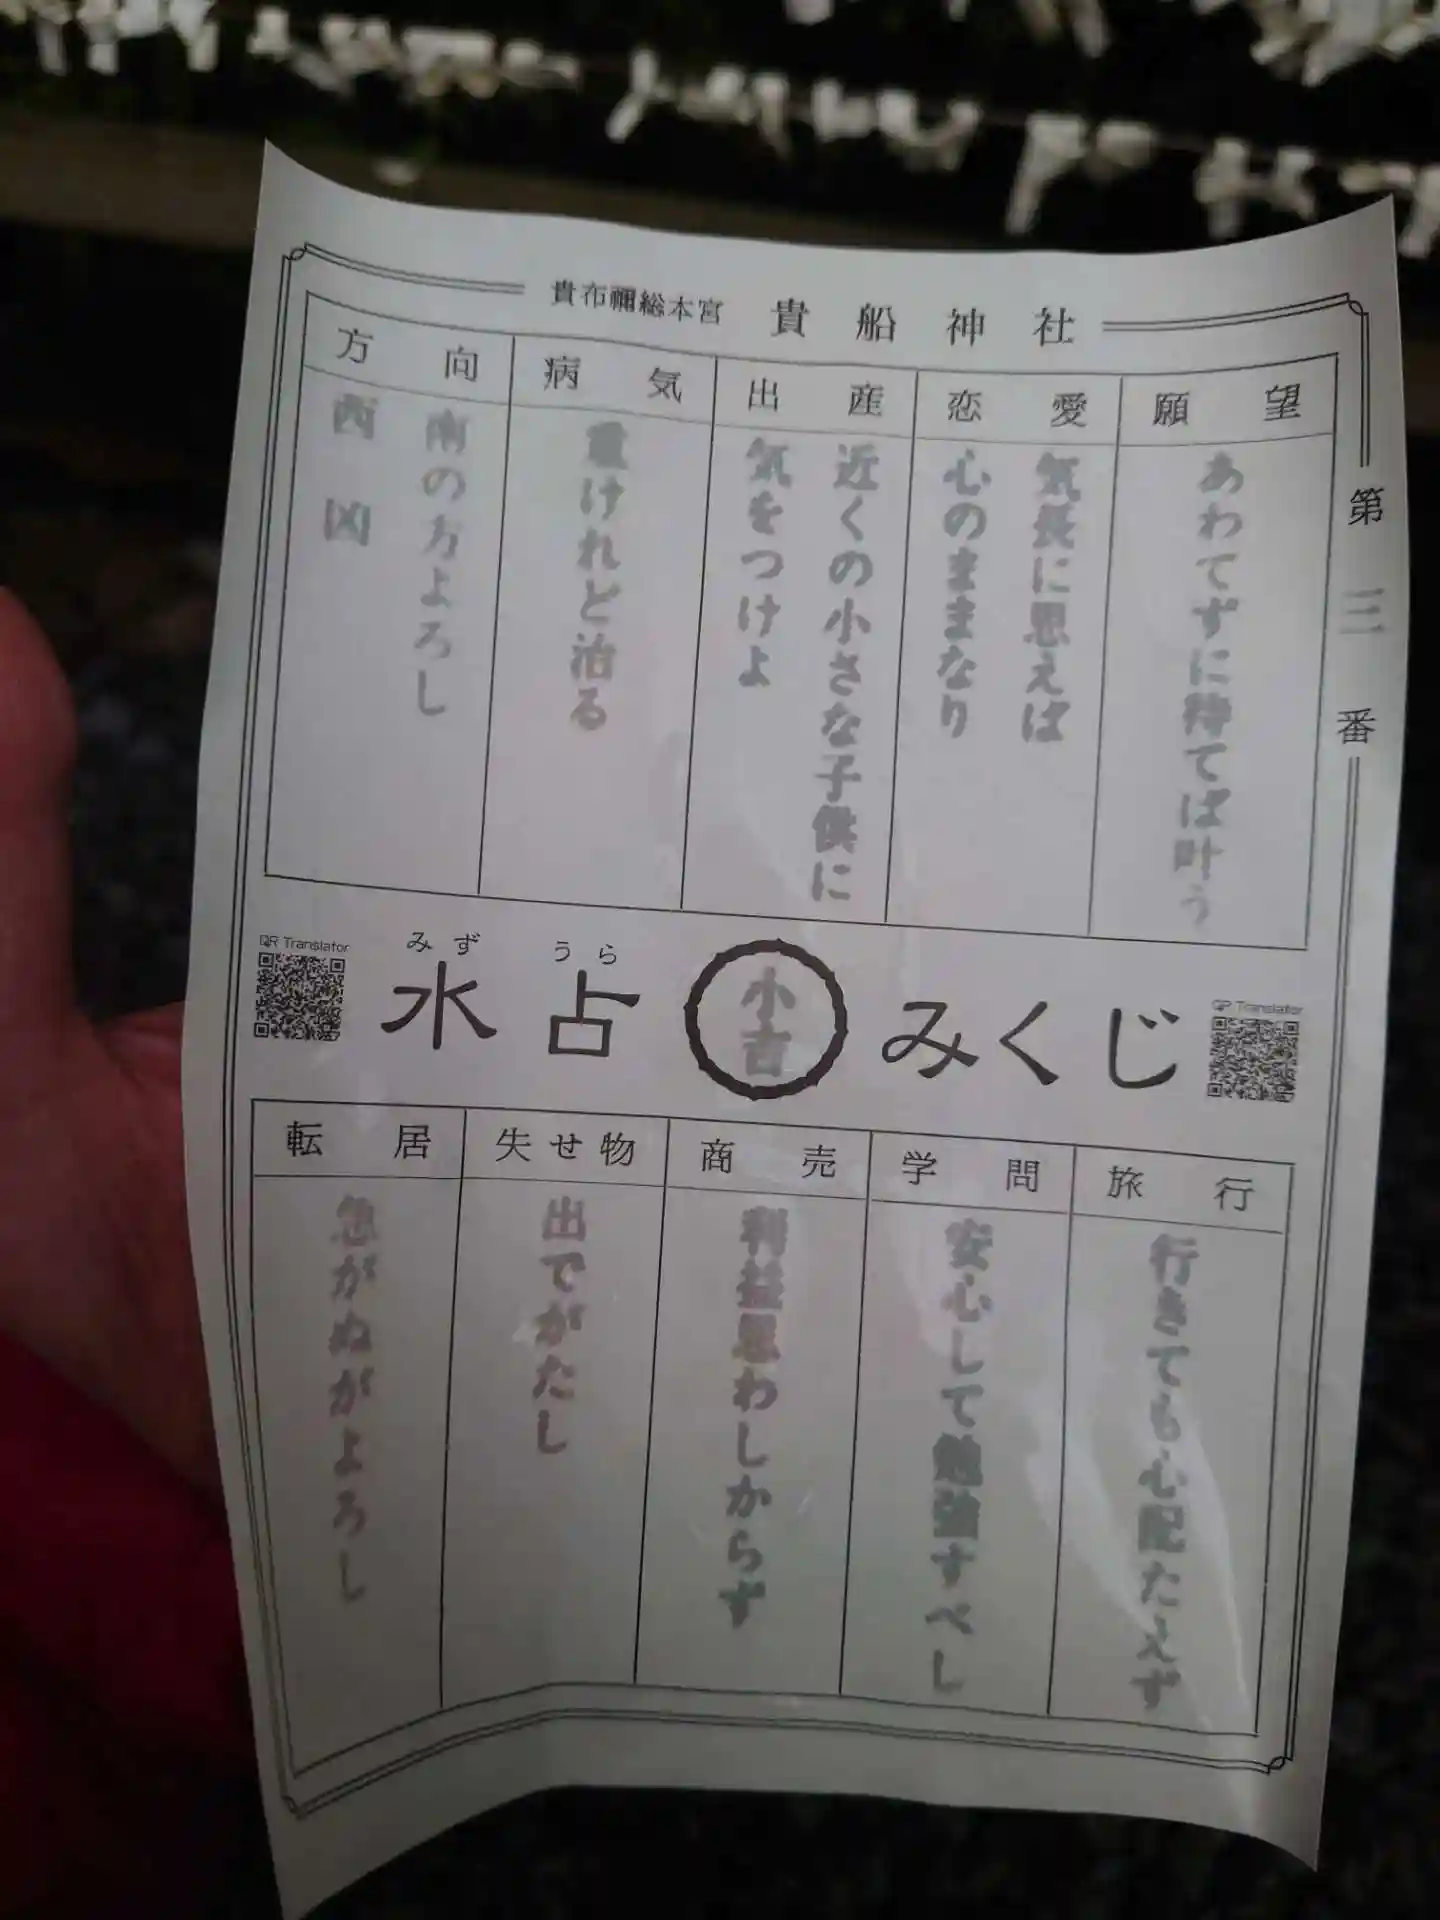 貴布禰総本宮 貴船神社
第三番
願望
あわてずに待てば叶う
恋愛
気長に思えば
心のままなり
出産
近くの小さな子供に
気をつけよ
病気
重けれど治る
方向
南の方よろし
西 凶
QR Translator
みず うら
水占 小吉 みくじ
QR Translator
旅行
行きても心配たえず
学問
安心して勉強すべし
商売
利益思わしからず
失せ物
出でがたし
転居
急がぬがよろし